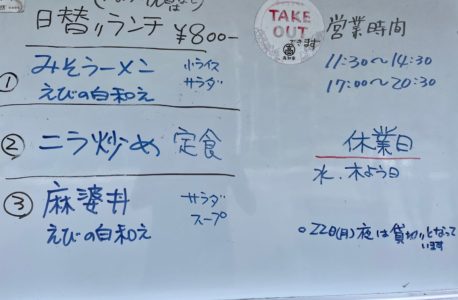 日替りランチ ¥800-
① みそラーメン 小ライス
えびの白和え サラダ
② ニラ炒め 定食
③ 麻婆丼 サラダ
えびの白和え スープ
TAKE
OUT
できます
営業時間
11:30〜14:30
17:00〜20:30
休業日
水.木よう日
○22日(月)夜は貸切りとなって
います